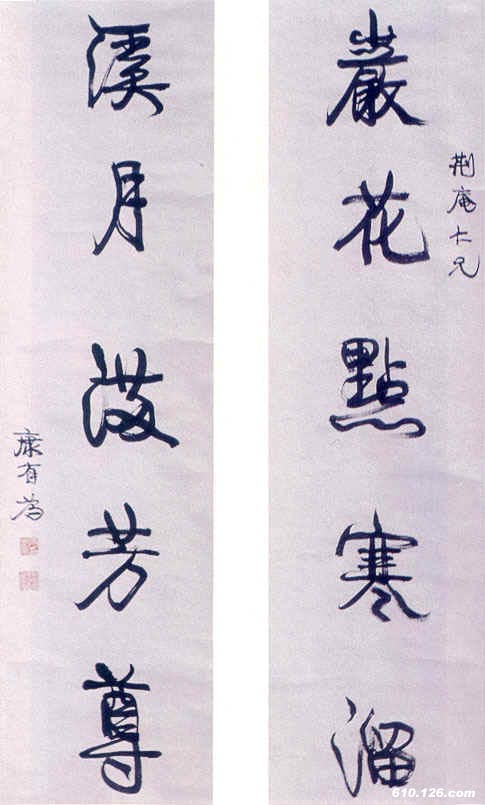 荆庵仁兄
巖花點寒溜
溪月芳尊
康有為
610.126.com